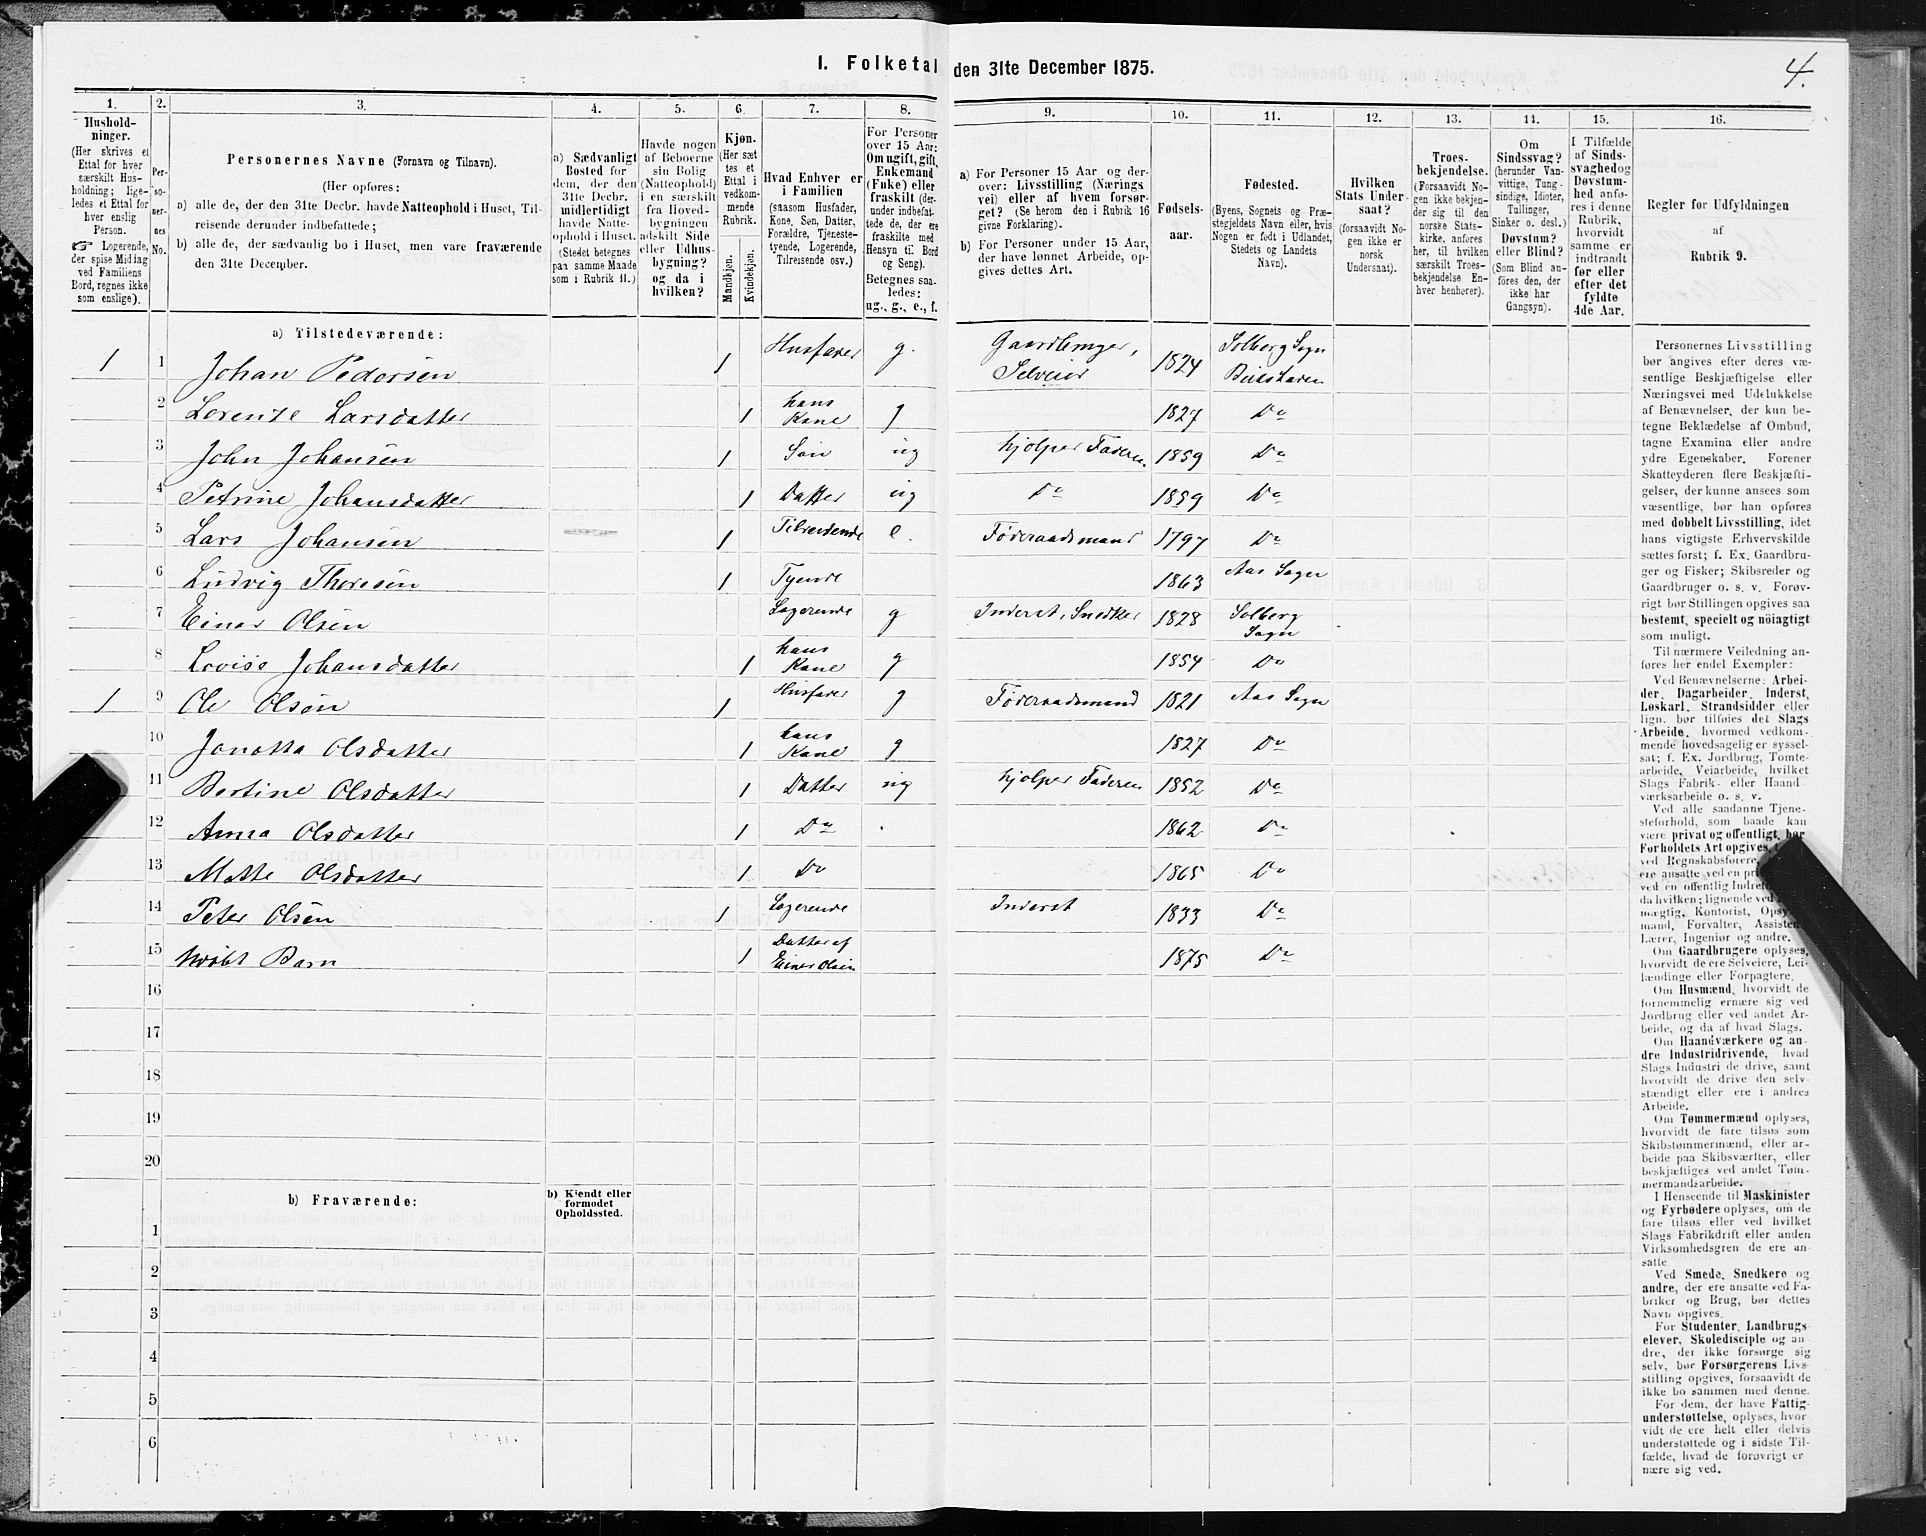 I. Folketal den 31te December 1875.
4.
1. 2. 3. 4. 5. 6. 7. 8. 9. 10. 11. 12. 13. 14. 15. 16.
Hushold-
ninger.
(Her skrives et
Ettal for hver
særskilt Hus-
holdning; lige-
ledes et Ettal for
hver enslig
Person.
☞ Logerende,
der spise Middag
ved Familiens
Bord, regnes ikke
som enslige).
Per-
so-
ner-
nes
No.
Personernes Navne (Fornavn og Tilnavn).
(Her opføres:
a) alle de, der den 31te Decbr. havde Natteophold i Huset, Til-
reisende derunder indbefattede;
b) alle de, der sædvanlig bo i Huset, men vare fraværende
den 31te December.
a) Sædvanligt
Bosted for
dem, der den
31te Decbr.
midlertidigt
havde Natte-
ophold i Huset.
(Stedet betegnes
paa samme Maade
som i Rubrik 11.)
Havde nogen
af Beboerne
sin Bolig
(Natteophold)
i en særskilt
fra Hoved-
bygningen
adskilt Side
eller Udhus-
bygning?
og da i
hvilken?
Kjøn.
(Her sæt-
tes et
Ettal i
vedkom-
mende
Rubrik.
Mandkjøn.
Kvindekjøn.
Hvad Enhver er
i Familien
(saasom Husfader,
Kone, Søn, Datter,
Forældre, Tjeneste-
tyende, Logerende,
Tilreisende osv.)
For Personer
over 15 Aar:
Om ugift, gift,
Enkemand
(Enke) eller
fraskilt (der-
under indbefat-
tede de, der ere
fraskilte med
Hensyn til Bord
og Seng).
Betegnes saa-
ledes:
ug., g., e., f.
a) For Personer 15 Aar og der-
over: Livsstilling (Nærings
vei) eller af hvem forsør-
get? (Se herom den i Rubrik 16
givne Forklaring).
b) For Personer under 15 Aar,
der have lønnet Arbeide, op-
gives dettes Art.
Fødsels-
aar.
Fødested.
(Byens, Sognets og Præ-
stegjeldets Navn eller, hvis
Nogen er født i Udlandet,
Stedets og Landets
Navn).
Hvilken
Stats Under-
saat?
(forsaavidt No-
gen ikke er
norsk
Undersaat).
Troes-
bekjendelse.
(Forsaavidt No-
gen ikke bekjen-
der sig til den
norske Stats-
kirke, anføres
her, til hvilken
særskilt Troes-
bekjendelse En-
hver henhører).
Om
Sindssvag?
(herunder Van-
vittige, Tung-
sindige, Idioter,
Tullinger,
Sinker o. desl.)
Døvstum?
eller Blind?
(Som Blind an-
føres den, der
ikke har
Gangsyn).
I Tilfælde
af Sinds-
svaghed og
Døvstum-
hed anfø-
res i denne
Rubrik,
hvorvidt
samme er
indtraadt
før eller
efter det
fyldte
4de Aar.
Regler for Udfyldningen
af
Rubrik 9.
a) Tilstedeværende:
1 1 Johan Pedersen 1 Husfader g. Gaardbruger, Selveier 1824 Solberg Sogn Beitstaden
2 Lorentse Larsdatter 1 hans Kone g 1827 Do
3 John Johansen 1 Søn ug hjælper Faderen 1859 Do
4 Petrine Johansdatter 1 Datter ug Do 1859 Do
5 Lars Johansen 1 Tilreisende e. Føderaadsmand 1797 Do
6 Ludvig Thoresen 1 Tyende 1863 Aas Sogn
7 Einar Olsen Logerende g Inderst, Snedker 1828 Solberg Sogn
8 Lovise Johansdatter 1 hans Kone g 1854 Do
1 9 Ole Olsen 1 Husfader g Føderaadsmand 1821 Aas Sogn
10 Janatta Olsdatter 1 hans Kone g 1827 Do
11 Bertine Olsdatter 1 Datter ug hjælper Faderen 1852 Do
12 Anna Olsdatter 1 Do 1862 Do
13 Mette Olsdatter 1 Do 1865 Do
14 Peter Olsen 1 Logerende Inderst 1833 Do
15 Udøbt Barn 1 Datter af Einar Olsen 1875 Do
16
17
18
19
20
b) Fraværende:
b) Kjendt eller
formodet
Opholdssted.
1
2
3
4
5
6
Personernes Livsstilling
bør angives efter deres væ-
sentlige Beskjæftigelse eller
Næringsvei med Udelukkelse
af Benævnelser, der kun be-
tegne Beklædelse af Ombud,
tagne Examina eller andre
ydre Egenskaber. Forener
Skatteyderen flere Beskjæfti-
gelser, der kunne ansees som
væsentlige, bør han opføres
med dobbelt Livsstilling, idet
hans vigtigste Erhvervskilde
sættes først; f. Ex. Gaardbru-
ger og Fisker; Skibsreder og
Gaardbruger o. s. v. Forøv-
rigt bør Stillingen opgives saa
bestemt, specielt og nöiagtigt
som muligt.
Til nærmere Veiledning an-
føres her endel Exempler:
Ved Benævnelserne: Arbei-
der, Dagarbeider, Inderst,
Løskarl, Strandsidder eller
lign. bør tilføies det Slags
Arbeide, hvormed vedkom-
mende hovedsagelig er syssel-
sat; f. Ex. Jordbrug, Tomte-
arbeide, Veiarbeide, hvilket
Slags Fabrik- eller Haand-
værksarbeide o. s. v.
Ved alle saadanne Tjene-
steforhold, som baade kan
være privat og offentligt, bør
Forholdets Art opgives,
ved Regnskabsførere,
ere ansatte ved en
ved en offentlig
da hvilken; lignende ved
mægtig, Kontorist,
mand, Forvalter,
Lærer, Ingeniør og andre.
Om Gaardbrugere oplyses,
hvorvidt de ere Selveiere, Lei-
lændinge eller Forpagtere.
Om Husmænd, hvorvidt de
fornemmelig ernære sig ved
Jordbrug eller ved andet Ar-
beide, og da af hvad Slags.
Om Haandværkere og an-
dre Industridrivende, hvad
Slags Industri de drive, samt
hvorvidt de drive den selv-
stændigt eller ere i andres
Arbeide.
Om Tømmermænd oplyses,
hvorvidt de fare tilsøs som
Skibstømmermænd, eller ar-
beide paa Skibsværfter, eller
beskjæftiges ved andet Tøm-
mermandsarbeide.
I Henseende til Maskinister
og Fyrbødere oplyses, om de
fare tilsøs eller ved hvilket
Slags Fabrikdrift eller anden
Virksomhedsgren de ere an-
satte.
Ved Smede, Snedkere og
andre, der ere ansatte ved Fa-
briker og Brug, bør dettes
Navn opgives.
For Studenter, Landbrugs-
elever, Skoledisciple og an-
dre, der ikke forsørge sig
selv, bør Forsørgerens Livs-
stilling opgives, forsaavidt de
ikke bo sammen med denne.
For dem, der have Fattig-
understøttelse, oplyses, hvor-
vidt de ere helt eller delvis
understøttede og i sidste Til-
fælde, hvad de forøvrigt er-
nære sig ved.